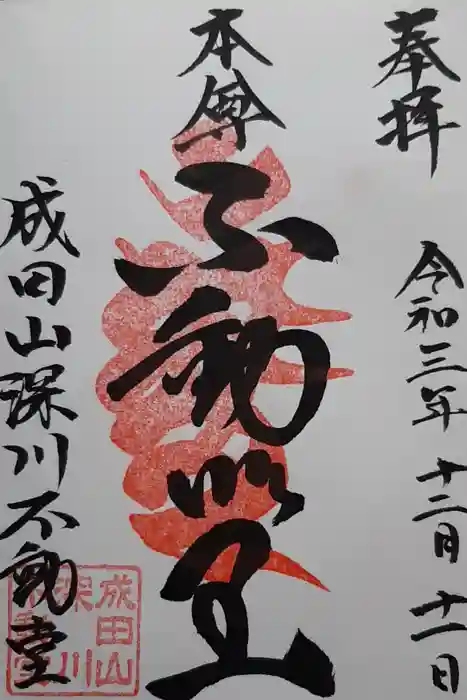 奉拝
令和三年 十二月 十一日
本尊
不動明王
成田山深川不動堂
成田山
深川